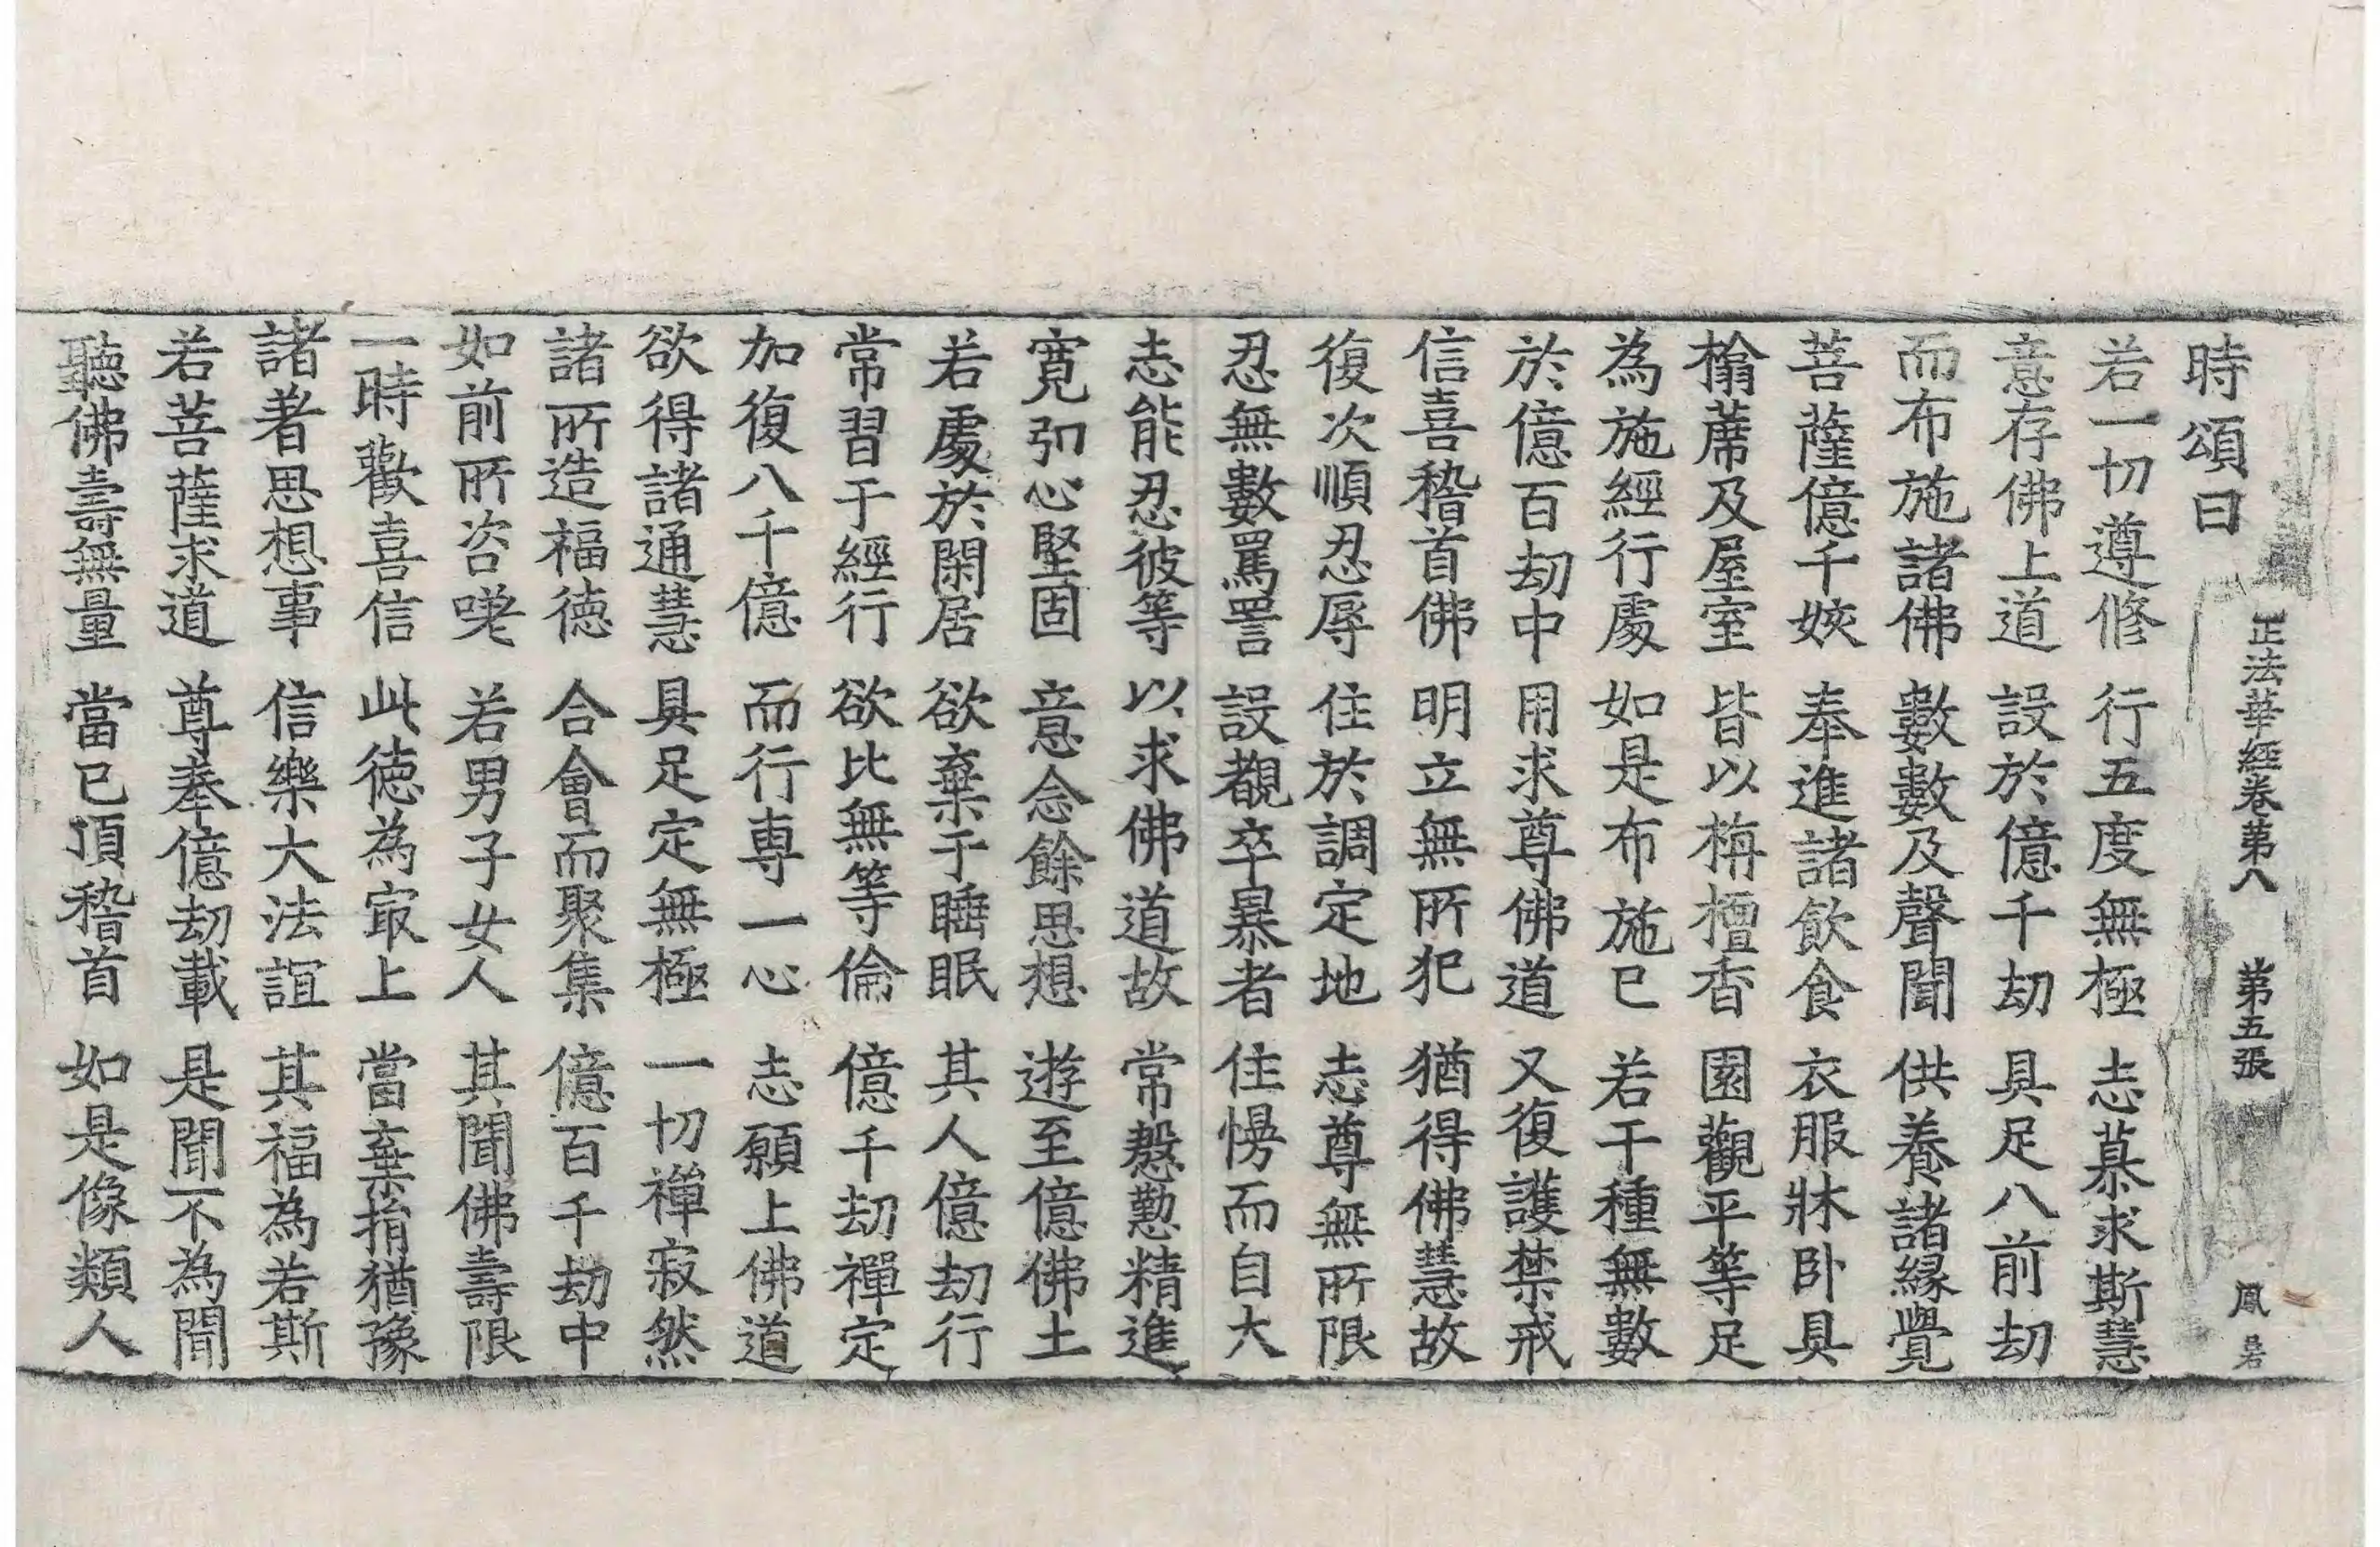 時頌曰
正法華經卷第八 第五張 鳳
若一切遵修 行五度無極 志慕求斯慧
意存佛上道 設於億千劫 具足八前劫
而布施諸佛 數數及聲聞 供養諸緣覺
菩薩億千姟 奉進諸飲食 衣服牀卧具
榻蓆及屋室 皆以栴檀香 園觀平等足
為施經行處 如是布施已 若干種無數
於億百劫中 用求尊佛道 又復護禁戒
信喜稽首佛 明立無所犯 猶得佛慧故
復次順忍辱 住於調定地 志尊無所限
忍無數罵詈 設覩卒暴者 住慢而自大
志能忍彼等 以求佛道故 常慇懃精進
寬弘心堅固 意念餘思想 遊至億佛土
若處於閑居 欲棄于睡眠 其人億劫行
常習于經行 欲比無等倫 億千劫禪定
加復八千億 而行專一心 志願上佛道
欲得諸通慧 具足定無極 一切禪寂然
諸所造福德 合會而聚集 億百千劫中
如前所咨嗟 若男子女人 其聞佛壽限
一時歡喜信 此德為冣上 當棄捐猶豫
諸著思想事 信樂大法誼 其福為若斯
若菩薩求道 尊奉億劫載 是聞不為聞
聽佛壽無量 當已頂稽首 如是像類人